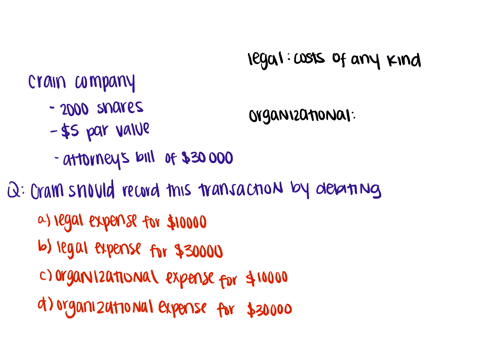 legal: costs of any kind
crain company
- 2000 shares
- $5 par value
organizational:
- attorneys bill of $30000
Q: Crain should record this transaction by debiting
a) legal expense for $10000
b) legal expense for $30000
c) organizational expense for $10000
d) organizational expense for $30000